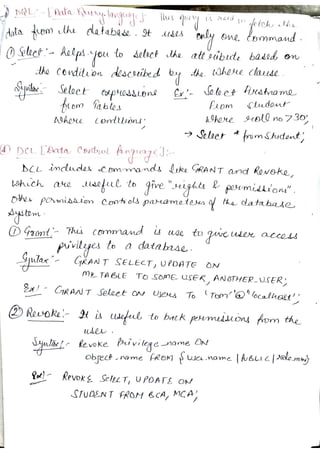 DQL :- [Data Query language] This query is used to fetch the
data from the database. It uses only one command.
① Select :- helps you to select the attribute based on
the condition described by the where clause.
Syntax :- Select expressions Ex :- Select firstname
from Tables From Student
where conditions; where roll no > 30;
→ Select * from Student;
④ DCL [Data Control language] :-
DCL includes commands like GRANT and REVOKE,
which are useful to give "rights & permissions".
Other permission controls parameters of the database
system.
① Grant :- This command is use to give user access
privileges to a database.
Syntax :- GRANT SELECT, UPDATE ON
MY_TABLE TO SOME_USER, ANOTHER_USER;
Ex :- GRANT Select ON Users To 'Tom'@'localhost';
② Revoke :- It is useful to back permissions from the
user.
Syntax :- Revoke Privilege_name ON
object_name FROM {user_name | PUBLIC | role_name}
Ex :- REVOKE SELECT, UPDATE ON
STUDENT FROM BCA, MCA;